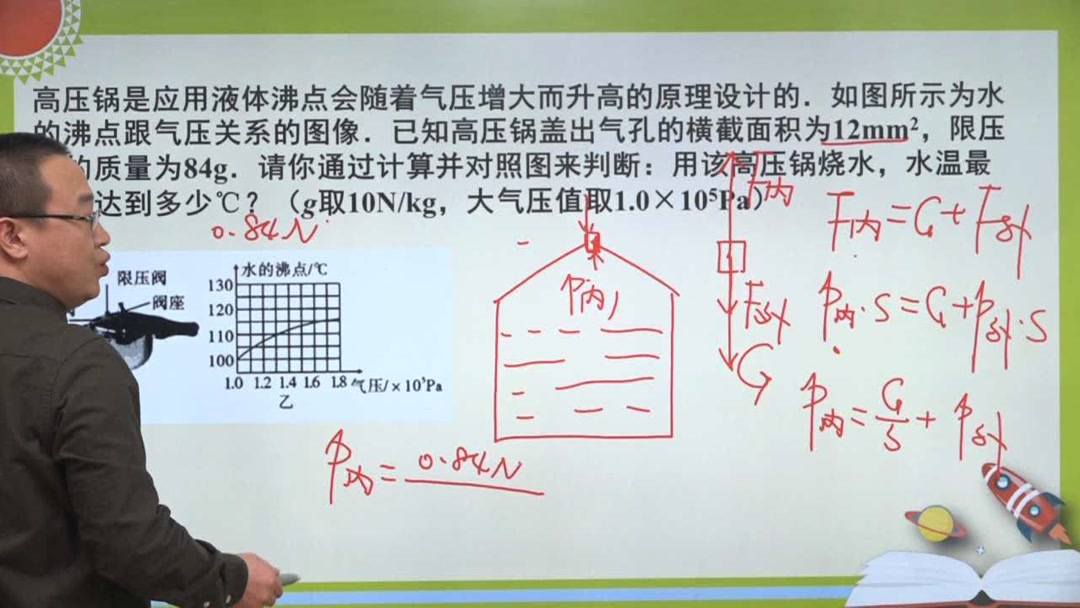 高压锅是应用液体沸点会随着气压增大而升高的原理设计的．如图所示为水
的沸点跟气压关系的图像．已知高压锅盖出气孔的横截面积为12mm²，限压
的质量为84g．请你通过计算并对照图来判断：用该高压锅烧水，水温最
达到多少℃？（g取10N/kg，大气压值取1.0×10⁵Pa）
0.84N
限压阀
阀座
水的沸点/℃
130
120
110
100
1.0 1.2 1.4 1.6 1.8 气压/×10⁵Pa
乙
P内
F内
F外
G
F内=G+F外
P内·S=G+P外·S
P内=G/S+P外
P内=0.84N